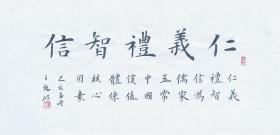 仁義禮智信
仁義
禮智
信為
儒家
五常
中國
價值
體係
核心
因素